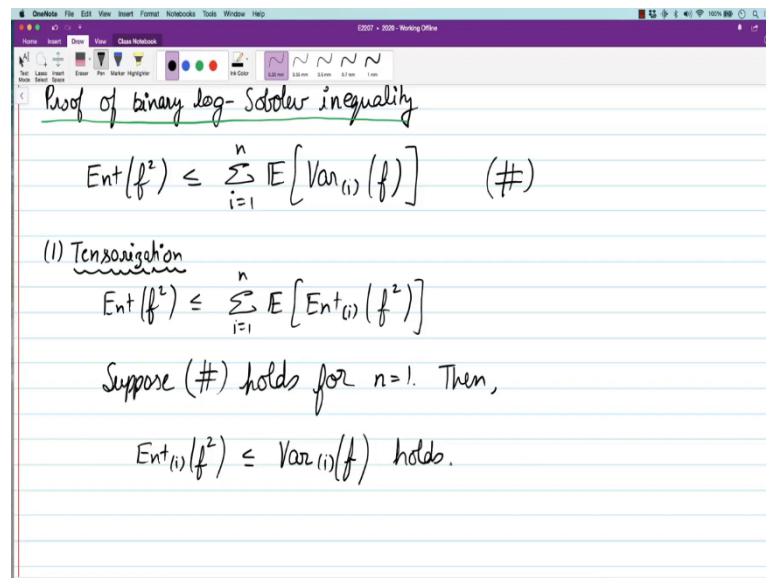 OneNote File Edit View Insert Format Notebooks Tools Window Help 100%
E2207 • 2020 - Working Offline
Home Insert Draw View Class Notebook
Text Mode Lasso Select Insert Space Eraser Pen Marker Highlighter Ink Color 0.25 mm 0.35 mm 0.5 mm 0.7 mm 1 mm
Proof of binary log-Sobolev inequality
Ent(f²) ≤ Σ_{i=1}^{n} 𝔼[Var₍ᵢ₎(f)] (#)
(1) Tensorization
Ent(f²) ≤ Σ_{i=1}^{n} 𝔼[Ent₍ᵢ₎(f²)]
Suppose (#) holds for n=1. Then,
Ent₍ᵢ₎(f²) ≤ Var₍ᵢ₎(f) holds.